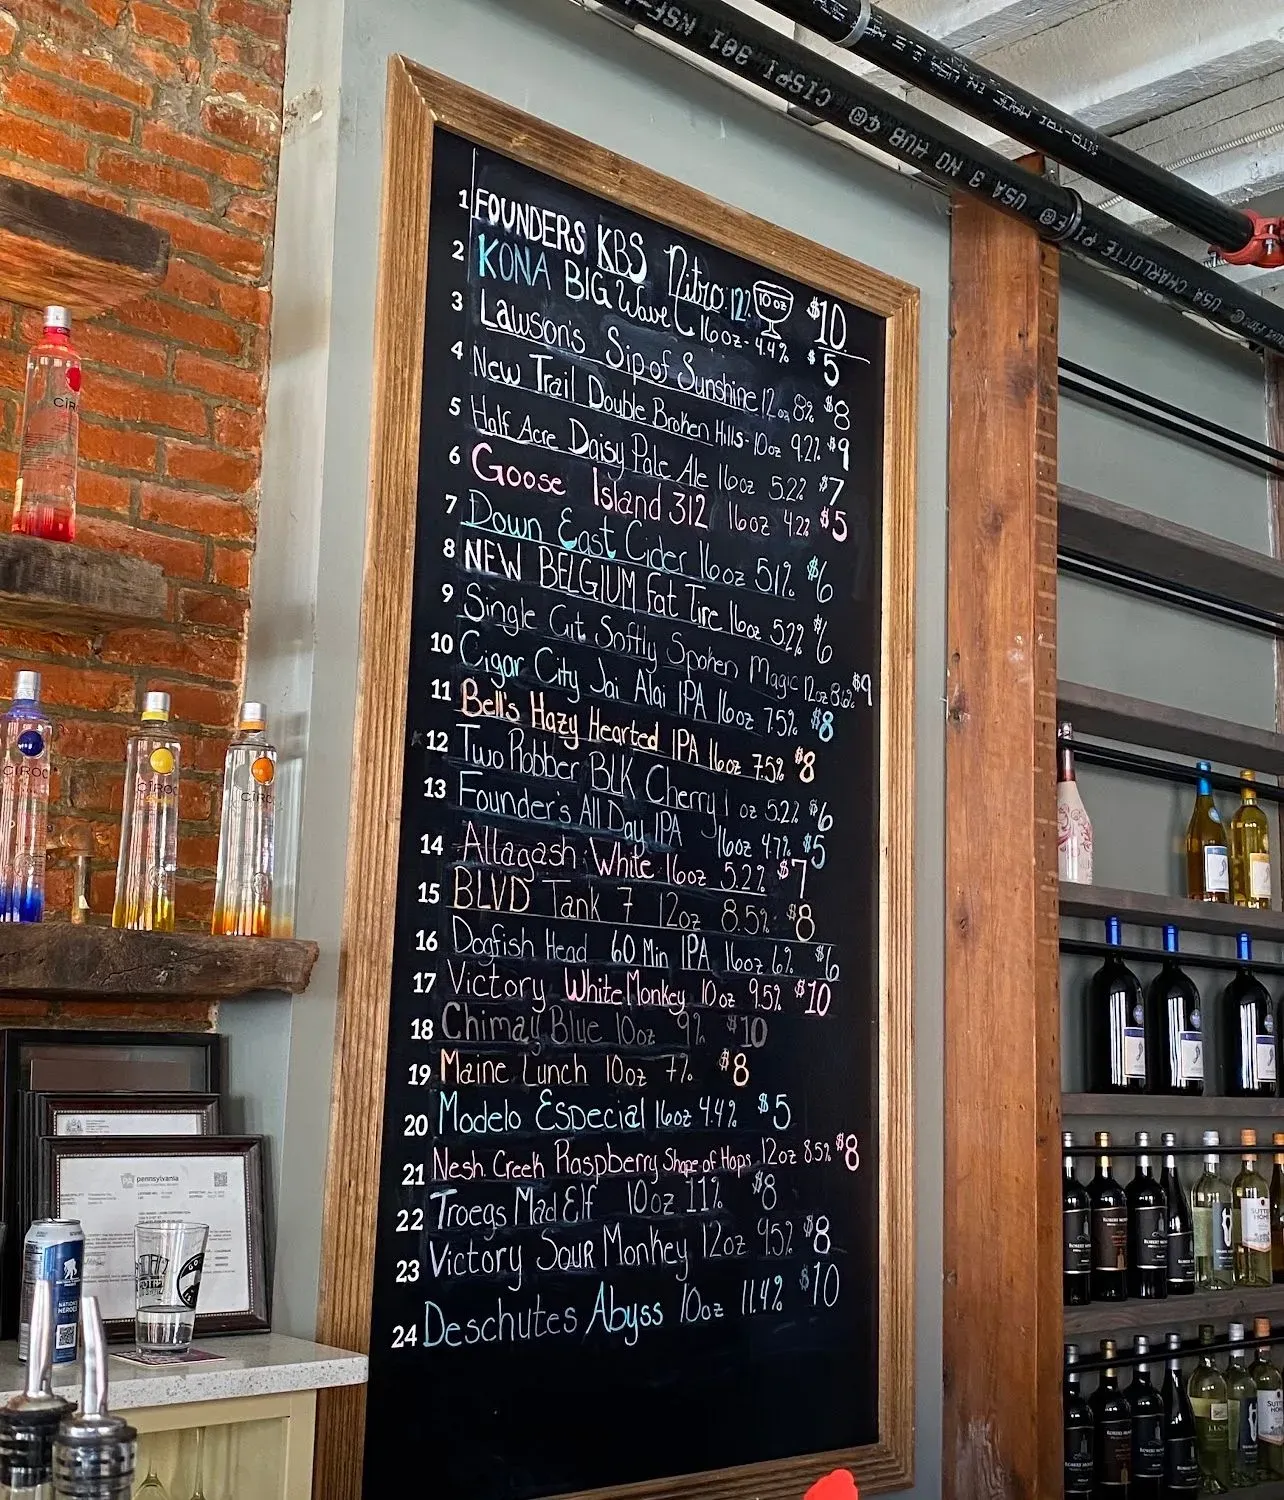 NSF- CISPI 301 NO HUB 4" @ USA 3 CHARLOTTE PIPE @ USA CHARLOTTE PIPE @
MADE IN USA
1 FOUNDERS KBS Nitro 12% 10 oz $10
2 KONA BIG Wave 16oz - 4.4% $5
3 Lawson's Sip of Sunshine 12oz 8% $8
4 New Trail Double Broken Hills - 10oz 9.2% $9
5 Half Acre Daisy Pale Ale 16oz 5.2% $7
6 Goose Island 312 16oz 4.2% $5
7 Down East Cider 16oz 5.1% $6
8 NEW BELGIUM Fat Tire 16oz 5.2% $6
9 Single Cut Softly Spoken Magic 12oz 8.6% $9
10 Cigar City Jai Alai IPA 16oz 7.5% $8
11 Bell's Hazy Hearted IPA 16oz 7.5% $8
12 Two Robber BLK Cherry 1 oz 5.2% $6
13 Founder's All Day IPA 16oz 4.7% $5
14 Allagash White 16oz 5.2% $7
15 BLVD Tank 7 12oz 8.5% $8
16 Dogfish Head 60 Min IPA 16oz 6% $6
17 Victory White Monkey 10oz 9.5% $10
18 Chimay Blue 10oz 9% $10
19 Maine Lunch 10oz 7% $8
20 Modelo Especial 16oz 4.4% $5
21 Nesh Creek Raspberry Shape of Hops 12oz 8.5% $8
22 Troegs Mad Elf 10oz 11% $8
23 Victory Sour Monkey 12oz 9.5% $8
24 Deschutes Abyss 10oz 11.4% $10
CÎR
CÎROC
CÎROC
CÎROC
pennsylvania